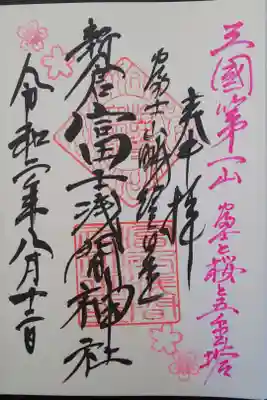 三國第一山 富士と桜と五重塔
奉拝
富士山眺望絶景
新倉富士浅間神社
令和二年八月十二日